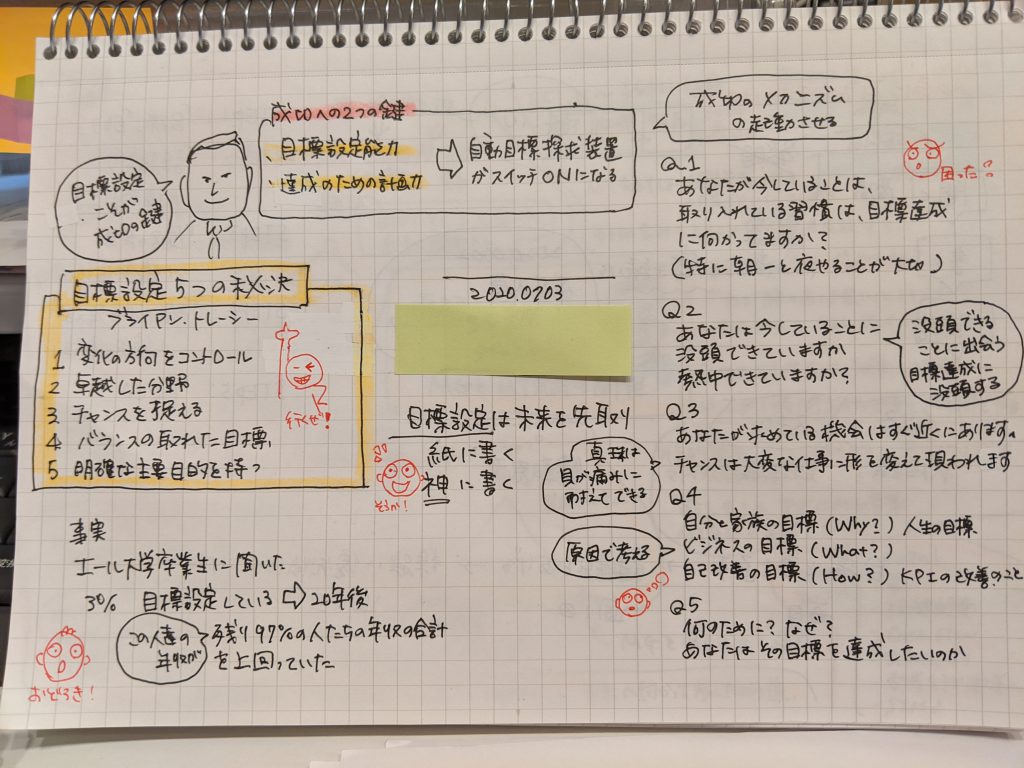 成功への2つの鍵
・目標設定能力
・達成のための計画力
⇨ 自動目標探求装置
がスイッチONになる
目標設定
こそが
成功の鍵
目標設定 5つの秘決
ブライアン・トレーシー
1 変化の方向をコントロール
2 卓越した分野
3 チャンスを捉える
4 バランスの取れた目標
5 明確な主要目的を持つ
行くぜ!
2020.0703
目標設定は未来を先取り
紙に書く
神に書く
そうか!
事実
エール大学卒業生に聞いた
3% 目標設定している ⇨ 20年後
この人達の
年収が
残り97%の人たちの年収の合計
を上回っていた
おどろき!
成功のメカニズム
の起動させる
困った!?
Q.1
あなたが今していることは、
取り入れている習慣は、目標達成
に向かってますか?
(特に朝一と夜やることが大切)
Q2
あなたは今していることに
没頭できていますか
夢中できていますか?
没頭できる
ことに出会う
目標達成に
没頭する
Q3
あなたが求めている機会はすぐ近くにあります。
チャンスは大変な仕事に形を変えて現われます
真珠は
貝が痛みに
耐えてできる
Q4
自分と家族の目標(Why?)人生の目標
ビジネスの目標(What?)
自己改善の目標(How?)KPIの改善のこと
原因で考える
Q5
何のために?なぜ?
あなたはその目標を達成したいのか